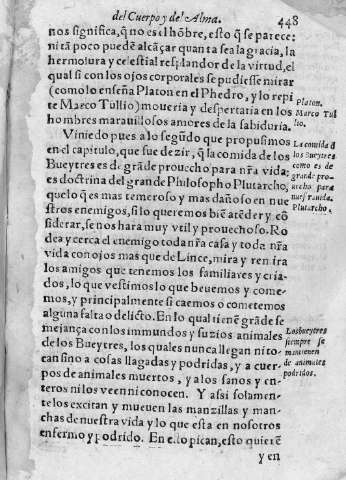 del Cuerpo y del Alma. 448
nos significa, q̃ no es el hõbre, esto q̃ se parece:
ni tã poco puedẽ alcãçar quanta sea la gracia, la
hermosura y celestial resplandor de la virtud, el
qual si con los ojos corporales se pudiesse mirar
(como lo enseña Platon en el Phedro, y lo repi
te Marco Tullio) moueria y despertaria en los
hombres marauillosos amores de la sabiduria.
Platon.
Marco Tul
lio.
Viniedo pues a lo segũdo que propusimos
en el capitulo, que fue dezir, q̃ la comida de los
Bueytres es de grãde prouecho para nr̃a vida:
es doctrina del grande Philosopho Plutarcho,
que lo q̃ es mas temeroso y mas dañoso en nue
stros enemigos, si lo queremos biẽ atẽder y cõ
siderar, se nos hara muy vtil y prouechoso. Ro
dea y cerca el enemigo toda nr̃a casa y toda nr̃a
vida con ojos mas que de Lince, mira y remira
los amigos que tenemos los familiares y cria-
dos, lo que vestimos lo que beuemos y come-
mos, y principalmente si caemos o cometemos
alguna falta o delicto. En lo qual tienẽ grãde se
mejança con los immundos y suzios animales
de los Bueytres, los quales nunca llegan ni to-
can sino a cosas llagadas y podridas, y a cuer-
pos de animales muertos, y a los sanos y en-
teros ni los veen ni conocen. Y assi solamen-
te los excitan y mueuen las manzillas y man-
chas de nuestra vida y lo que esta en nosotros
enfermo y podrido. En ello pican, esto quierẽ
La comida d̃
los bueytres
como es de
grande pro-
uecho para
nuestra vida.
Plutarcho.
Los bueytres
siempre se
mantienen
de animales
podridos.
y en